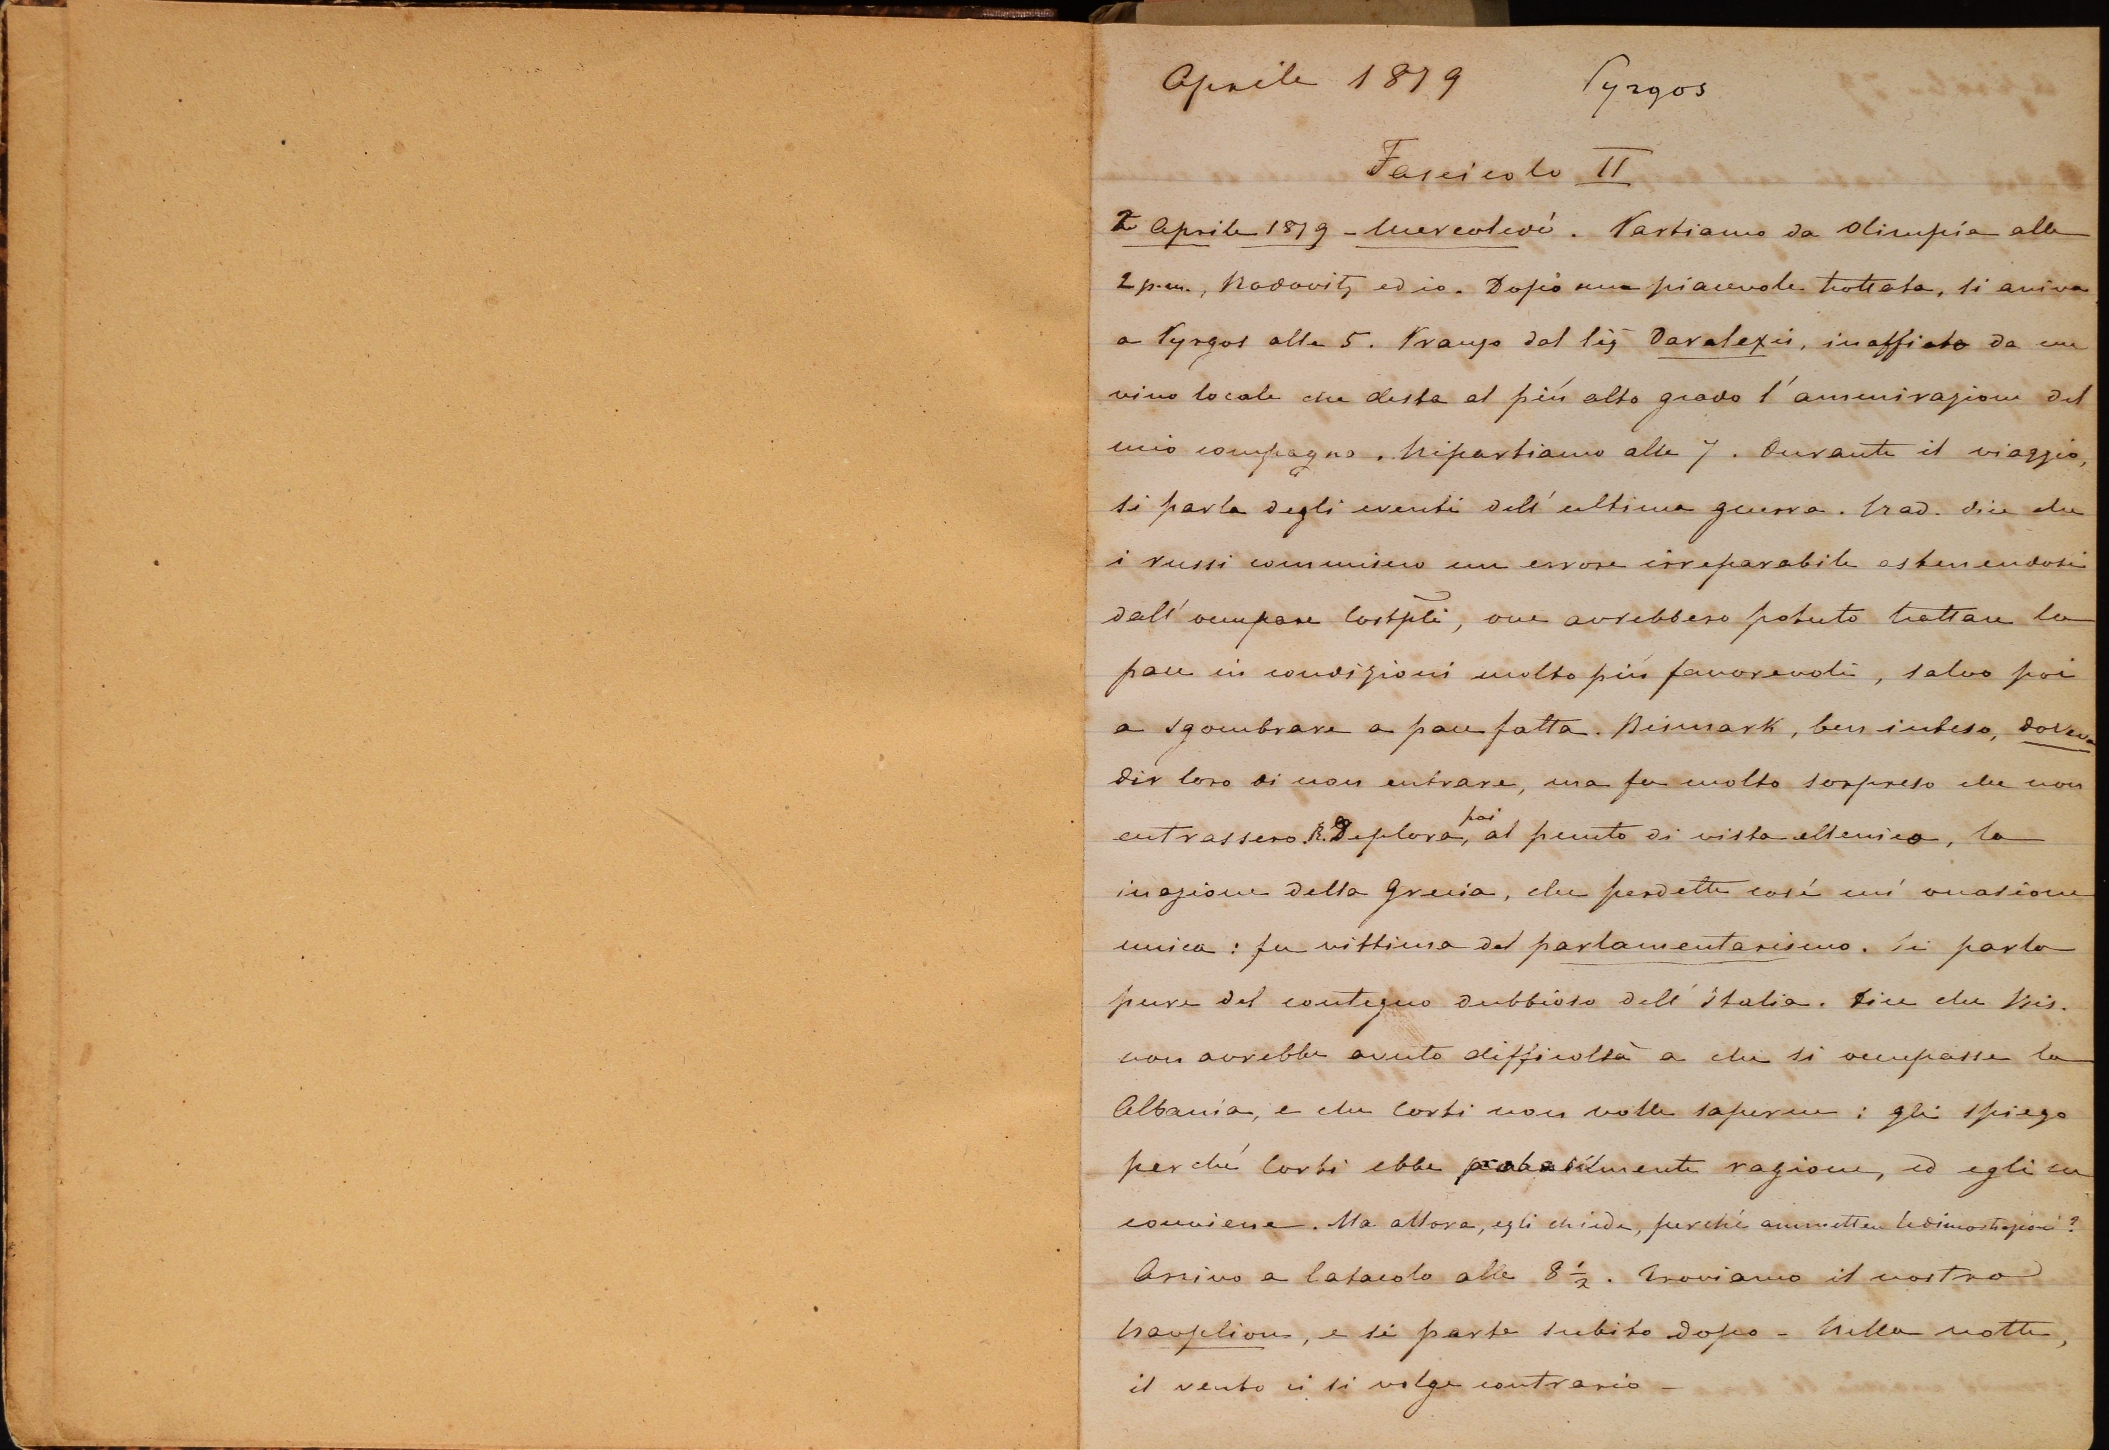 Aprile 1879 Pyrgos
Fascicolo II
2 Aprile 1879 - Mercoledì. Partiamo da Olimpia alle
2 p.m., Radovitz ed io. Dopo una piacevole trottata, si arriva
a Pyrgos alle 5. Pranzo dal Sig. Daralexis, inaffiato da un
vino locale che desta al più alto grado l'ammirazione del
mio compagno. Ripartiamo alle 7. Durante il viaggio,
si parla degli eventi dell'ultima guerra. Rad. dice che
i russi commisero un errore irreparabile astenendosi
dall'occupare Costpli, ove avrebbero potuto trattare la
pace in condizioni molto più favorevoli, salvo poi
a sgombrare a pace fatta. Bismark, ben inteso, doveva
dir loro di non entrare, ma fu molto sorpreso che non
entrassero. R. Deplora, poi al punto di vista ellenico, la
inazione della Grecia, che perdette così un'occasione
unica: fu vittima del parlamentarismo. Si parla
pure del contegno dubbioso dell'Italia. Dice che Bis.
non avrebbe avuto difficoltà a che si occupasse la
Albania, e che Corti non volle saperne: gli spiego
perché Corti ebbe probabilmente ragione, ed egli ne
conviene. Ma allora, egli chiede, perché ammettere le dimostrazioni?
Arrivo a Catacolo alle 8 1/2. Troviamo il nostro
Nauplion, e si parte subito dopo - Nella notte,
il vento ci si volge contrario -